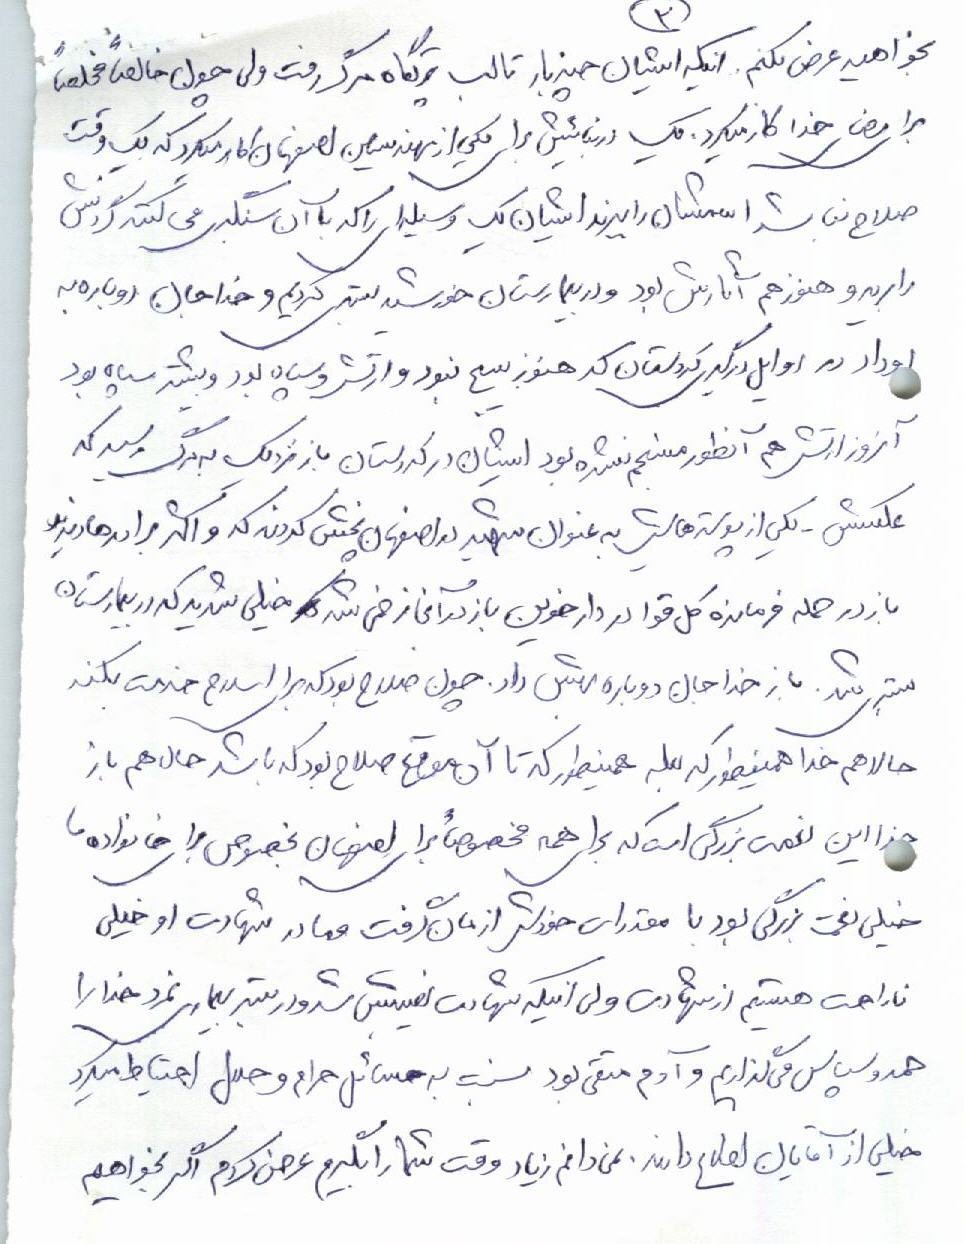 ۳
بخواهید عرض بکنم. اینکه ایشان چند بار تا لب پرتگاه مرگ رفت ولی چون خالصاً مخلصاً
برای رضای خدا کار میکرد. یک برای یکی از مهندسین اصفهان کار میکرد که یک وقت
صلاح نباشد اسمشان را ببرند ایشان یک وسیله‌ای را که با آن سنگبری می کنند گردنش
را برید و هنوز هم آثارش بود و در بیمارستان خورشید بستری کردیم و خدا جان دوباره به
او داد در اوایل درگیری کردستان که هنوز بسیج نبود و ارتش و سپاه بود و بیشتر سپاه بود
آنروز ارتش هم آنطور منسجم نشده بود ایشان در کردستان باز نزدیک به مرگ رسید که
عکسش - یکی از پوسترهایش به عنوان شهید در اصفهان پخش کردند که و اکثر برادرها دیدند
باز در حمله فرمانده کل قوا در دارخوین باز در آنجا زخمی شد خیلی شدید که در بیمارستان
بستری شد. باز خدا جان دوباره بهش داد. چون صلاح بود که برای اسلام خدمت بکند
حالا هم خدا همینطور که بله همینطور که تا آن موقع صلاح بود که باشد حالا هم باز
خدا این نعمت بزرگی است که برای همه مخصوصاً برای اصفهان بخصوص برای خانواده ما
خیلی نعمت بزرگی بود با مقدرات خودش از مان گرفت و ما در شهادت او خیلی
ناراحت هستیم از شهادت ولی اینکه شهادت نصیبش شد و در بستر بیماری نمرد خدا را
حمد و سپاس می گذاریم و آدم متقی بود نسبت به مسائل حرام و حلال احتیاط میکرد
خیلی از آقایان اطلاع دارند. نمی‌دانم زیاد وقت شما را بگیرم عرض کردم اگر بخواهیم